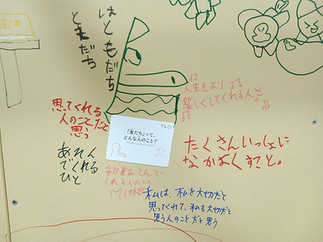 はともだち
ともだち
「友だち」って、
どんな人のこと？
人生をより
楽しくしてくれる人
思ってくれる
人のことだと
思う
あそんで
くれる
ひと
たくさんいっしょに
なかよくすこと。
私は、私を大切だと
思ってくれて、私も大切だと
思う人のことだと思う